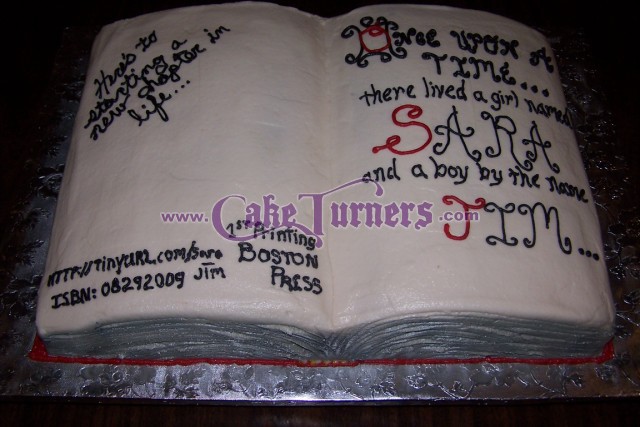 Here's to
starting a
new chapter in
life...
HTTP://TINYURL.com/Sara
Jim
ISBN: 08292009
1st Printing
BOSTON
PRESS
ONCE UPON A
TIME...
there lived a girl named
SARA
and a boy by the name
JIM...
www.CakeTurners.com